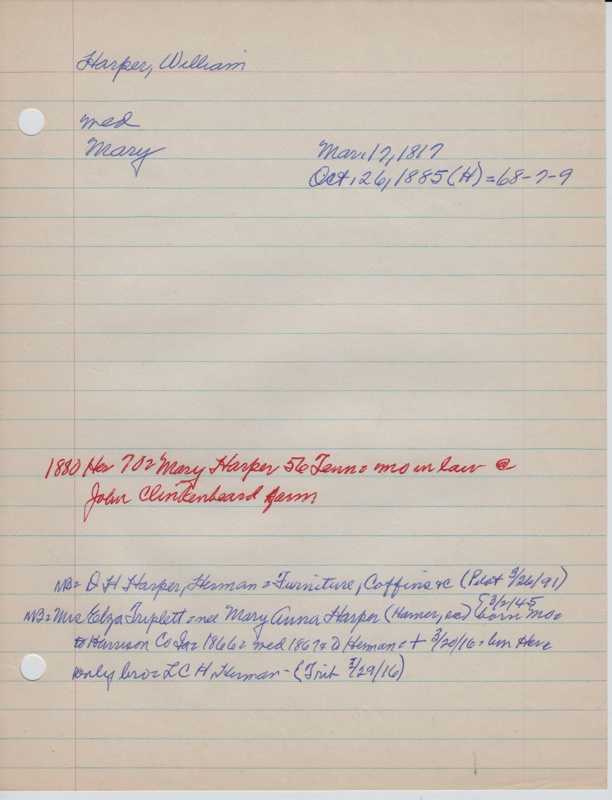 Harper, William
med
Mary
Mar. 17, 1817
Oct. 26, 1885 (H) = 68-7-9
1880 Her 702 Mary Harper 56 Tenn = mo in law @
John Clinkenbeard farm
NB = D H Harper, Herman = Furniture, Coffins &c (Pilot 3/26/91)
NB = Mrs Elza Triplett = nee Mary Anna Harper (Hamer, ) born Mo =
§ 3/2/45
Harrison Co Ia = 1866 = med 1867 = D Herman = + 3/20/16 = bur Here
only bro = L C H, Herman - (Trib 3/29/16)